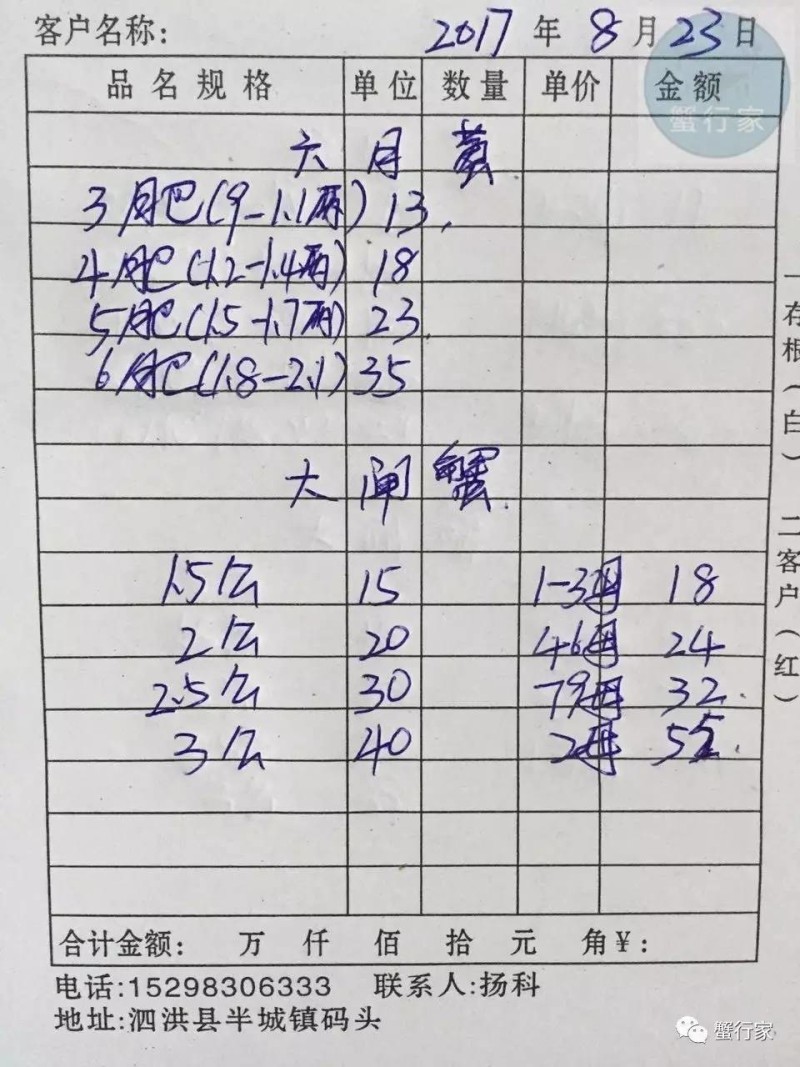 客户名称: 2017 年 8 月 23 日
品名规格 单位 数量 单价 金额
蟹行家
六 月 黄
3月肥(9-1.1两) 13.
4月肥(1.2-1.4两) 18
5月肥(1.5-1.7两) 23.
6月肥(1.8-2.1) 35
大 闸 蟹.
1.5公 15 1-3母 18
2公 20 4-6母 24
2.5公 30 79母 32.
3公 40 2母
合计金额: 万 仟 佰 拾 元 角¥:
电话:15298306333 联系人:扬科
地址:泗洪县半城镇码头
一存根(白) 二客户(红)
蟹行家